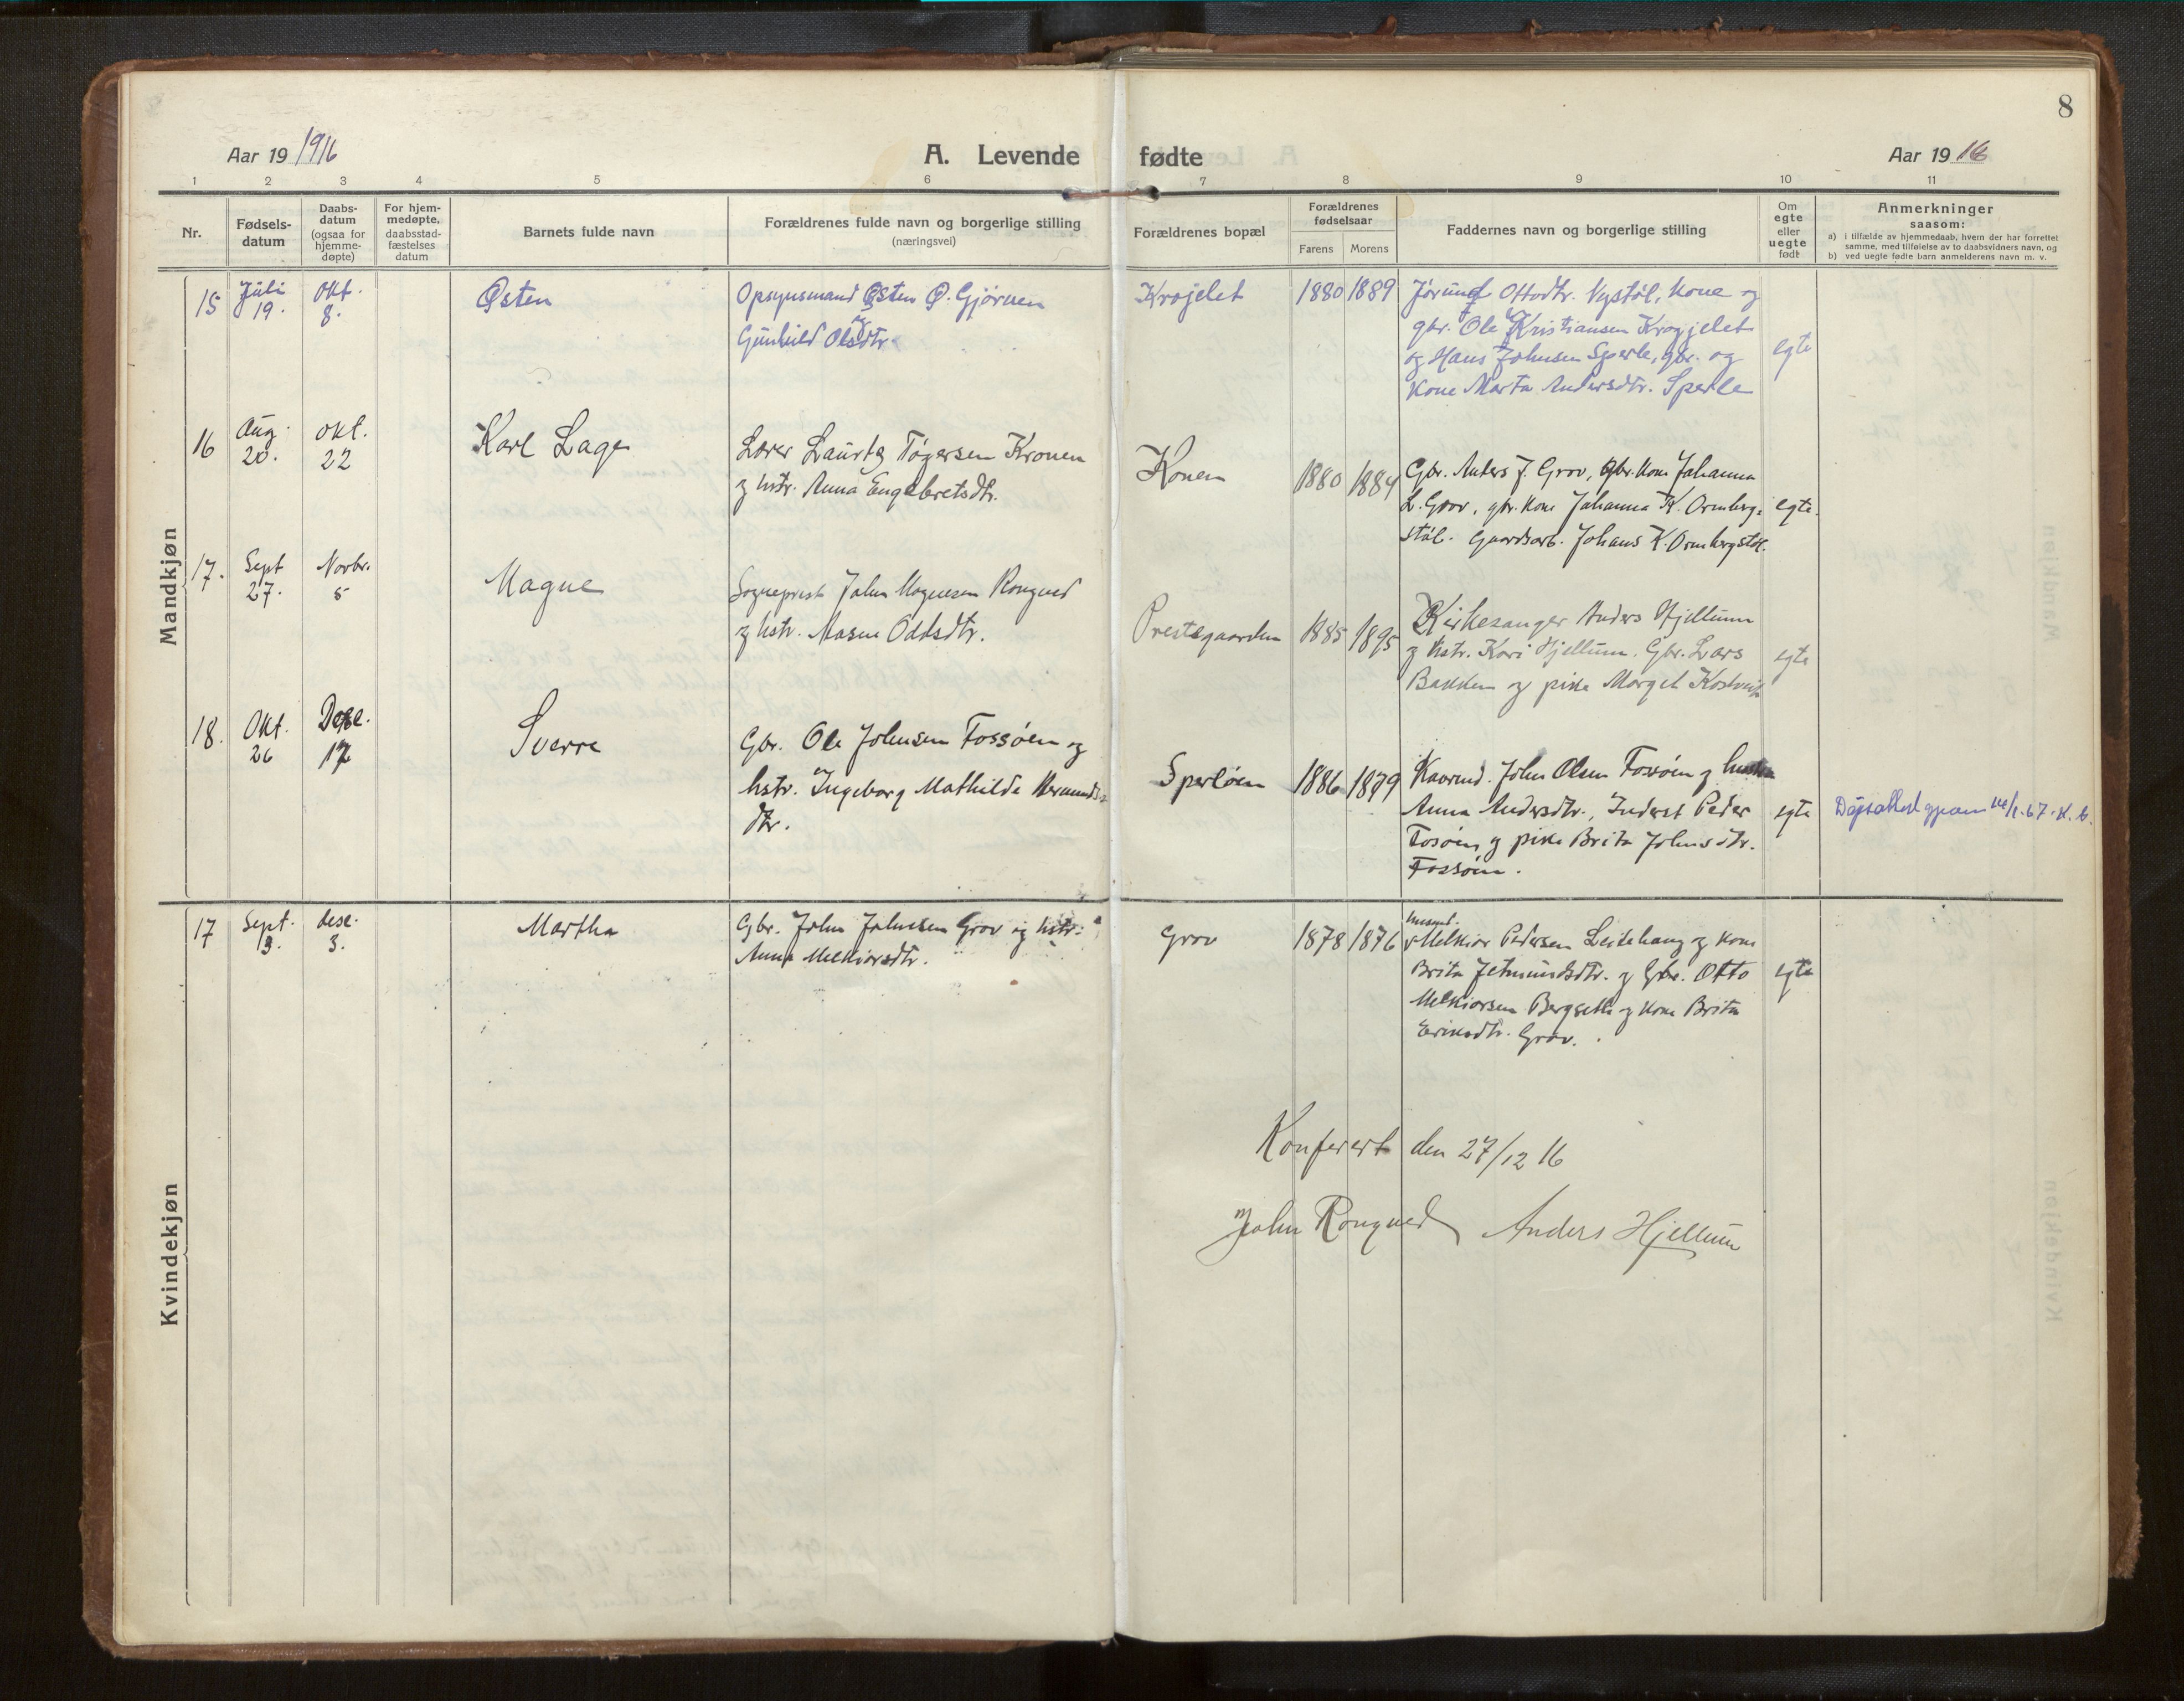 8
Aar 19 1916
A. Levende fødte
Aar 19 16
1 2 3 4 5 6 7 8 9 10 11
Nr.
Fødsels-
datum
Daabs-
datum
(ogsaa for
hjemme-
døpte)
For hjem-
medøpte,
daabsstad-
fæstelses
datum
Barnets fulde navn
Forældrenes fulde navn og borgerlige stilling
(næringsvei)
Forældrenes bopæl
Forældrenes
fødselsaar
Farens Morens
Faddernes navn og borgerlige stilling
Om
egte
eller
uegte
født
Anmerkninger
saasom:
a) i tilfælde av hjemmedaab, hvem der har forrettet
samme, med tilføielse av to daabsvidners navn, og
b) ved uegte fødte barn anmelderens navn m. v.
Mandkjøn
15
Juli
19.
Okt.
8.
Østen
Opsynsmand Østen Ø. Gjørven
og
Gunhild Olsdtr.
Krojelet
1880 1889
Jørund Ottodtr. Nystøl, Kone og
gbr. Ole Kristiansen Krogjelet
og Hans Johnsen Sperle, gbr. og
Kone Marta Andersdtr. Sperle
egte
16
Aug.
20.
Okt.
22
Karl Lage
Lærer Lauritz Tøgersen Kronen
og hstr. Anna Engebretsdtr.
Konen
1880 1884
Gbr. Anders J. Grov, gbr. Kone Johanna
L. Grov, gbr. Kone Johanna K. Ormberg-
støl. Gaardsarb. Johans K. Ormbergstøl.
egte.
17.
Sept
27.
Novbr.
5
Magne
Sogneprest John Magnesen Rongved
og hstr. Aasne Oddsdtr.
Prestegaarden
1885 1895
Kirkesanger Anders Hjellum
og hstr. Kari Hjellum. Gbr. Lars
Bakken og pike Marget
egte
18.
Okt.
26
Dese.
17
Sverre
Gbr. Ole Johnsen Fossøen og
hstr. Ingeborg Mathilde Hermunds-
dtr.
Sperløen
1886 1879
Kaarmd. John Olsen Fossøen og hustru
Anna Andersdtr., Inderst Peder
Fosøen, og pike Brita Johnsdtr.
Fossøen.
egte
Døpsattest 14/1-67. K. b.
Kvindekjøn
17
Sept.
3.
dese.
3.
Martha
Gbr. John Johnesen Grov og hstr.
Anna Melkiorsdtr.
Grov
1878 1876
husmd.
Melkior Pedersen Leitehaug og Kone
Brita Jetmundsdtr. og Gbr. Otto
Melkiorsen Bergsett og Kone Brita
Eriksdtr. Grov.
egte
Konferert den 27/12 16
John Rongved Anders Hjellum